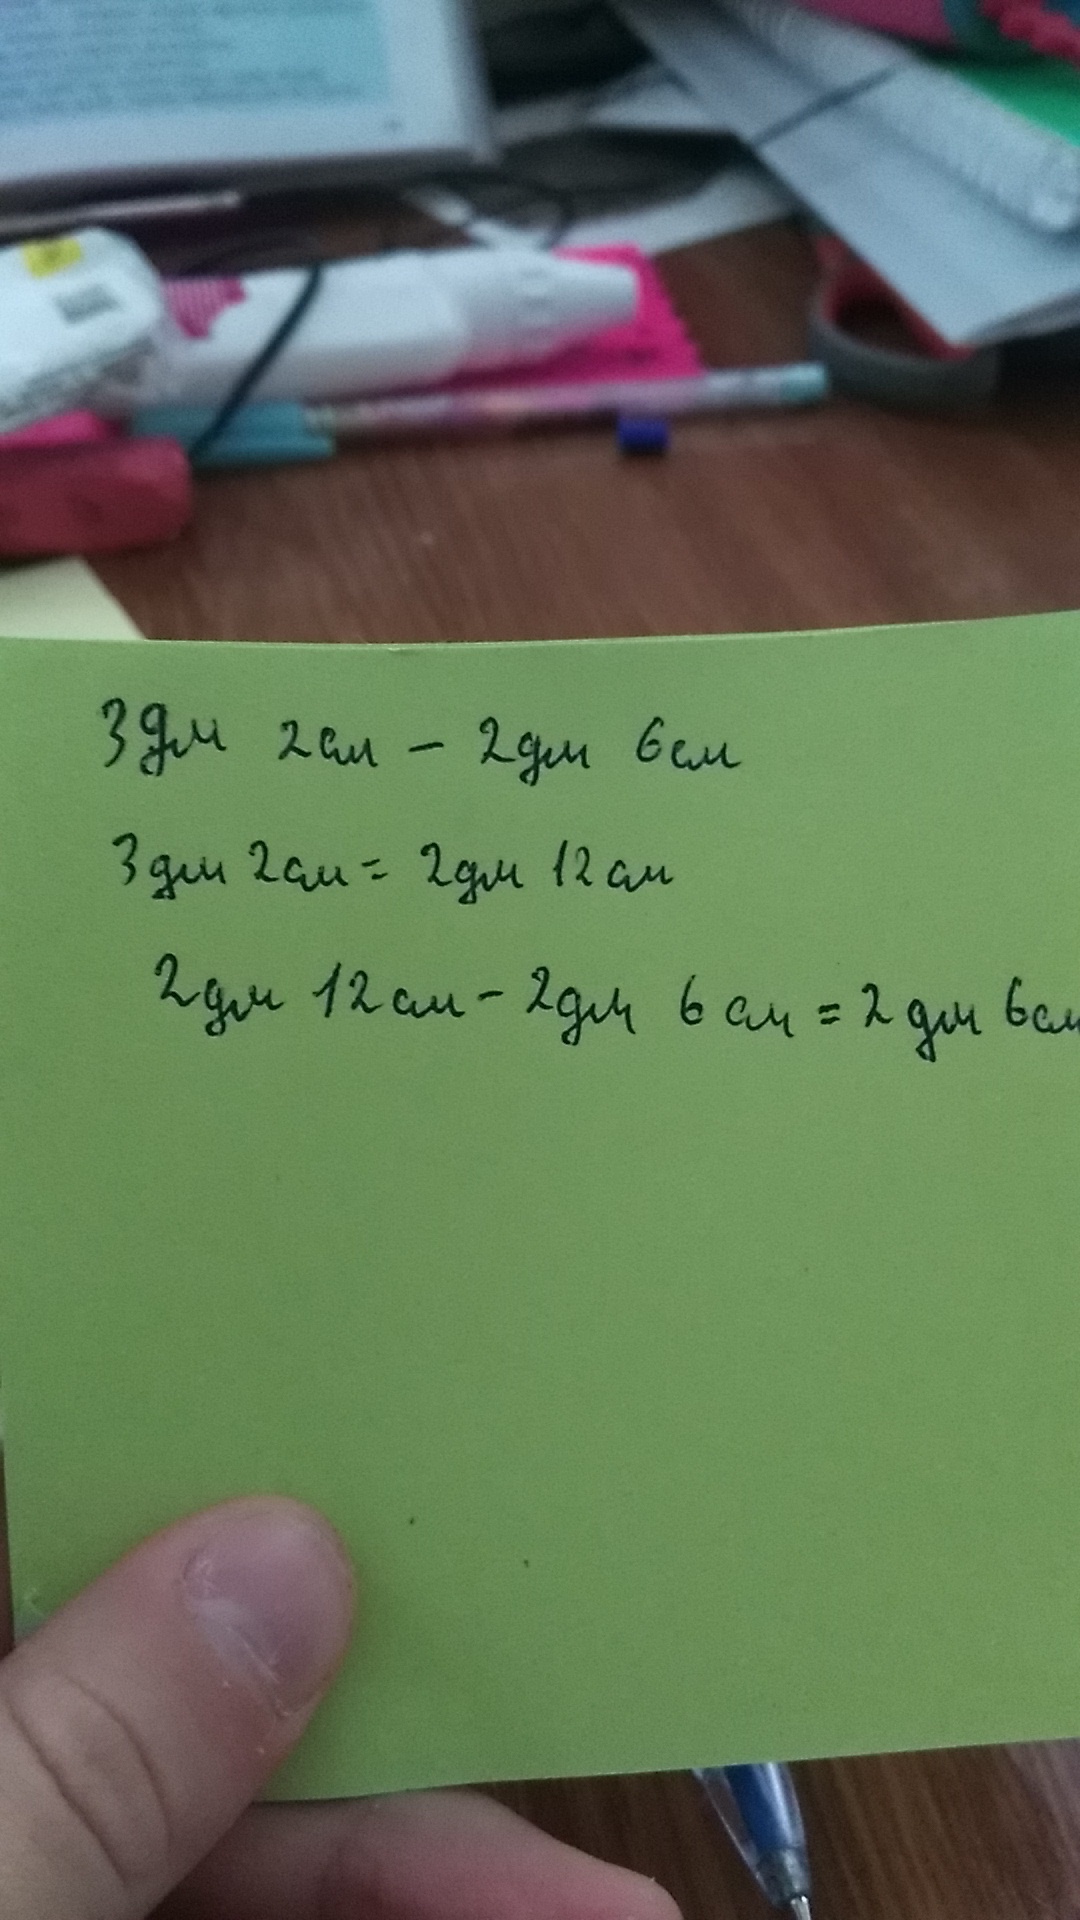 3дм 2см – 2дм 6см
3дм 2см = 2дм 12см
2дм 12см – 2дм 6см = 2дм 6см